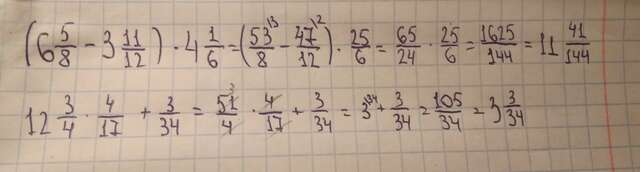 (6 5/8 - 3 11/12) · 4 1/6 = (53/8 ^13 - 47/12 ^12) · 25/6 = 65/24 · 25/6 = 1625/144 = 11 41/144
12 3/4 · 4/17 + 3/34 = 51/4 ^3 · 4/17 + 3/34 = 3 ^34 + 3/34 = 105/34 = 3 3/34